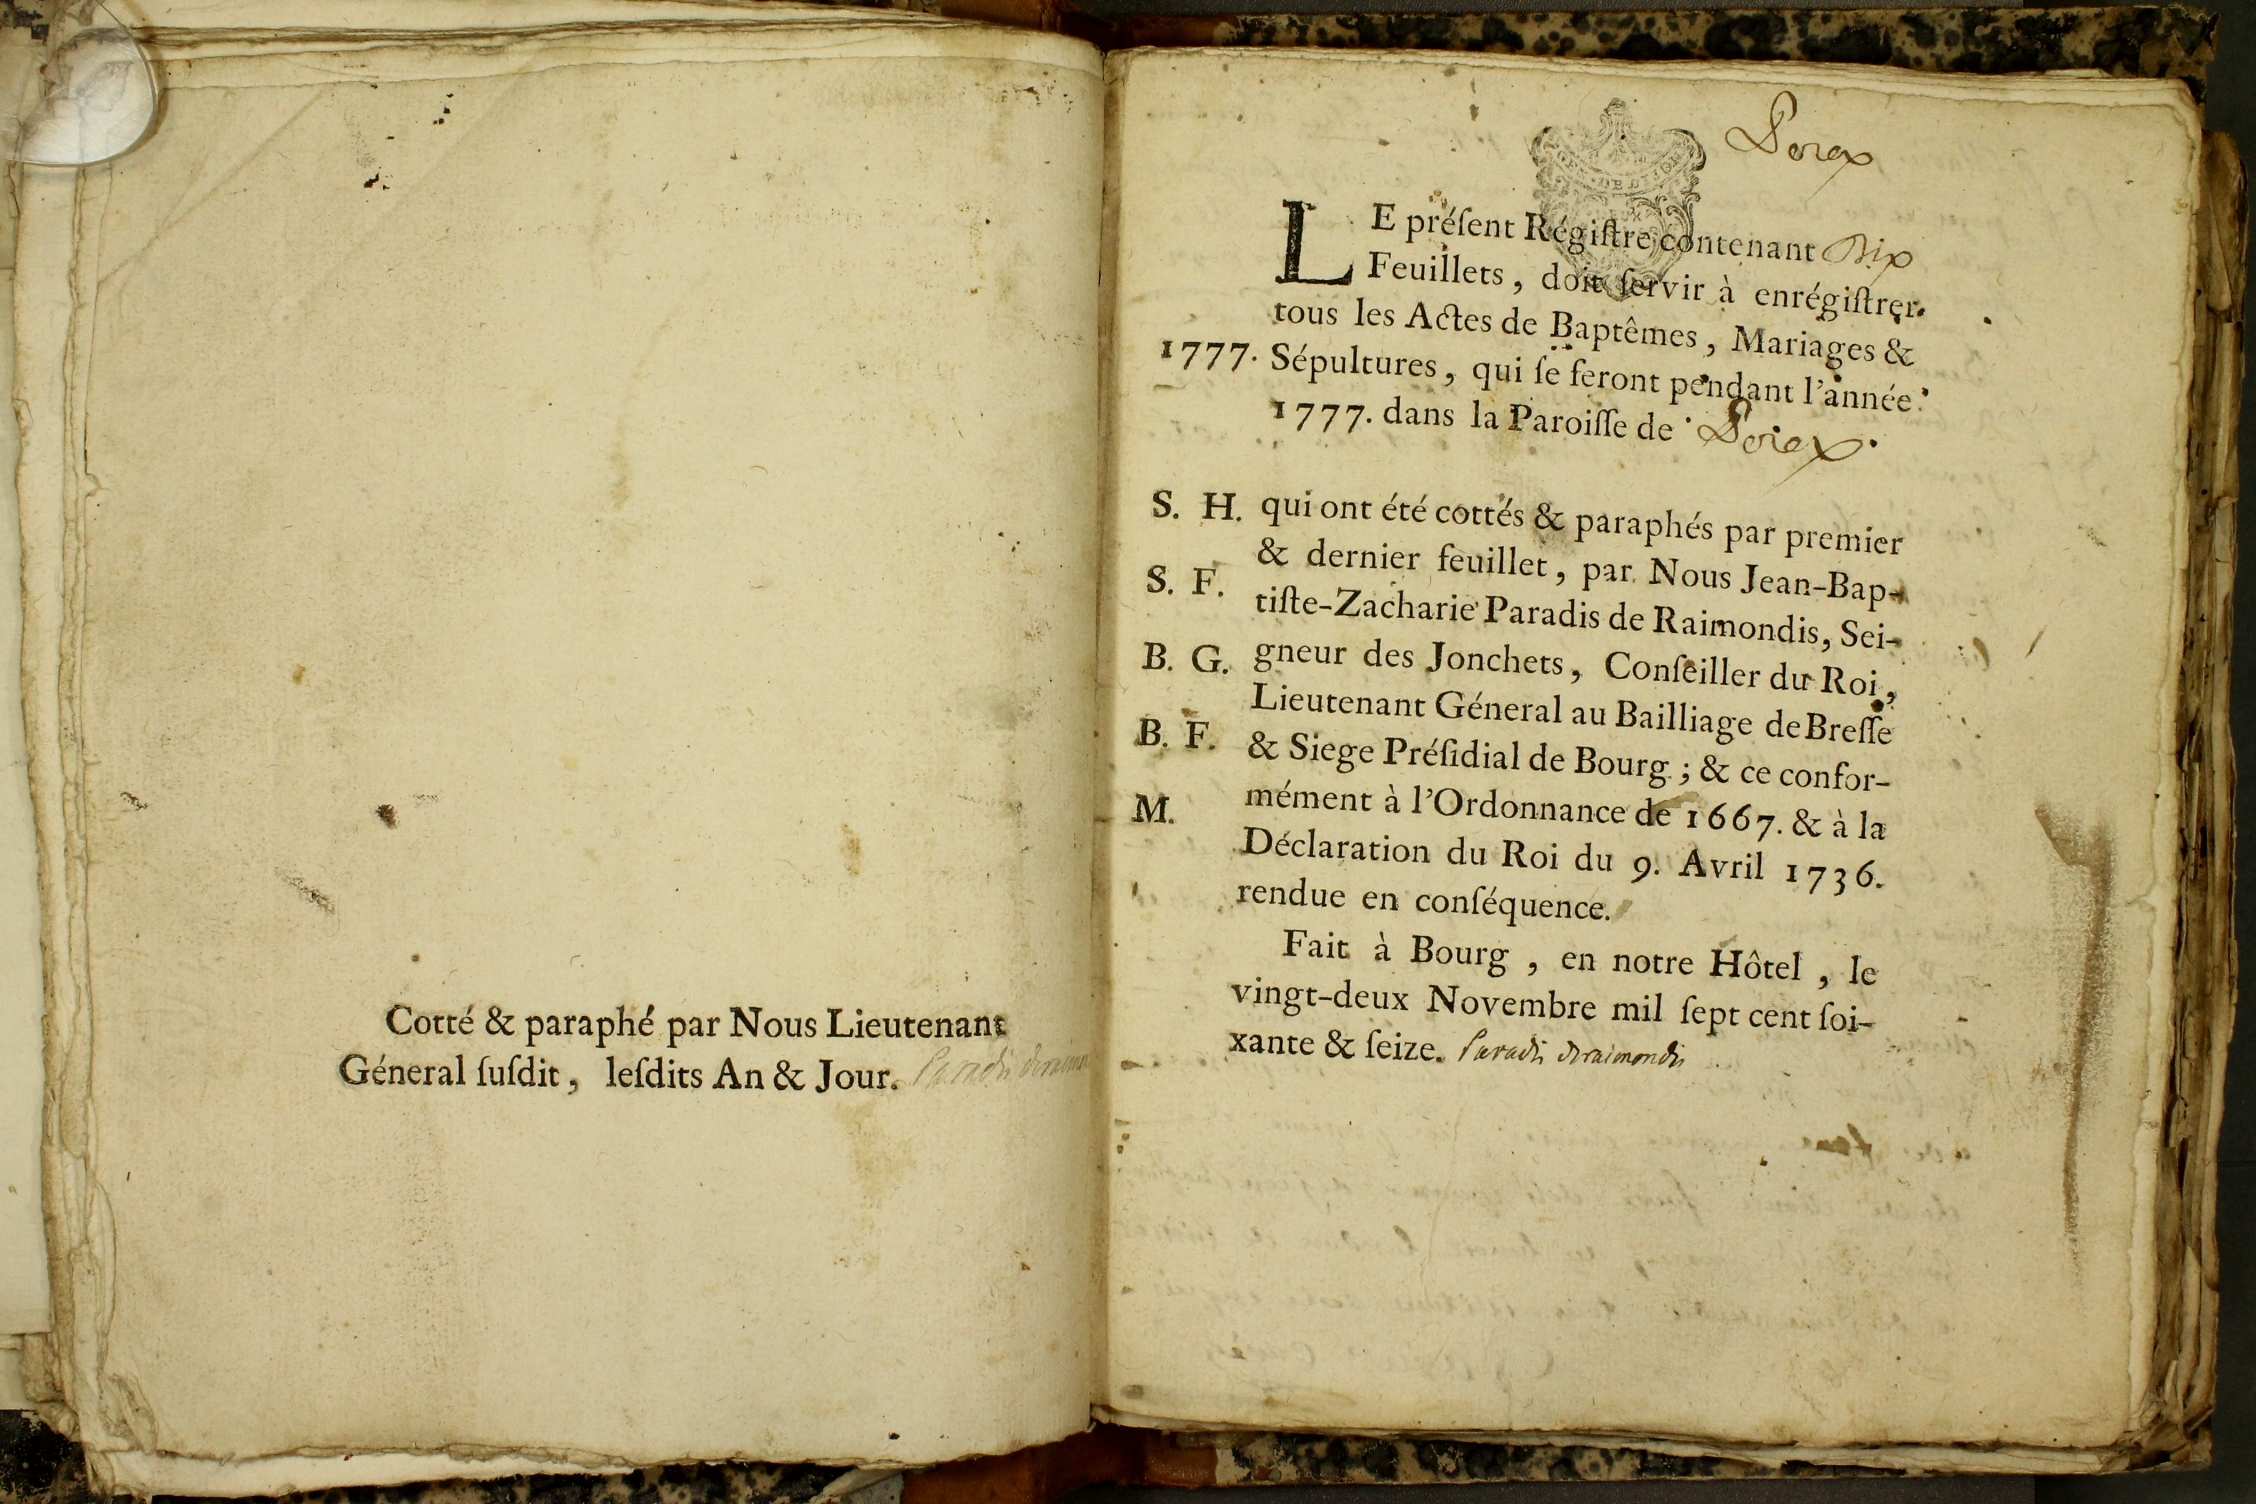 Cotté & paraphé par Nous Lieutenant
Géneral ſuſdit, leſdits An & Jour. Paradis deraimon
LE préſent Régiſtre contenant Dix
Feuillets, doit ſervir à enrégiſtrer
tous les Actes de Baptêmes, Mariages &
1777. Sépultures, qui ſe feront pendant l'année
1777. dans la Paroiſſe de
S. H. qui ont été cottés & paraphés par premier
& dernier feuillet, par Nous Jean-Bap-
S. F. tiſte-Zacharie Paradis de Raimondis, Sei-
B. G. gneur des Jonchets, Conſeiller du Roi,
Lieutenant Géneral au Bailliage de Breſſe
B. F. & Siege Préſidial de Bourg; & ce confor-
M. mément à l'Ordonnance de 1667. & à la
Déclaration du Roi du 9. Avril 1736.
rendue en conſéquence.
Fait à Bourg, en notre Hôtel, le
vingt-deux Novembre mil ſept cent ſoi-
xante & ſeize. Paradis deraimondis